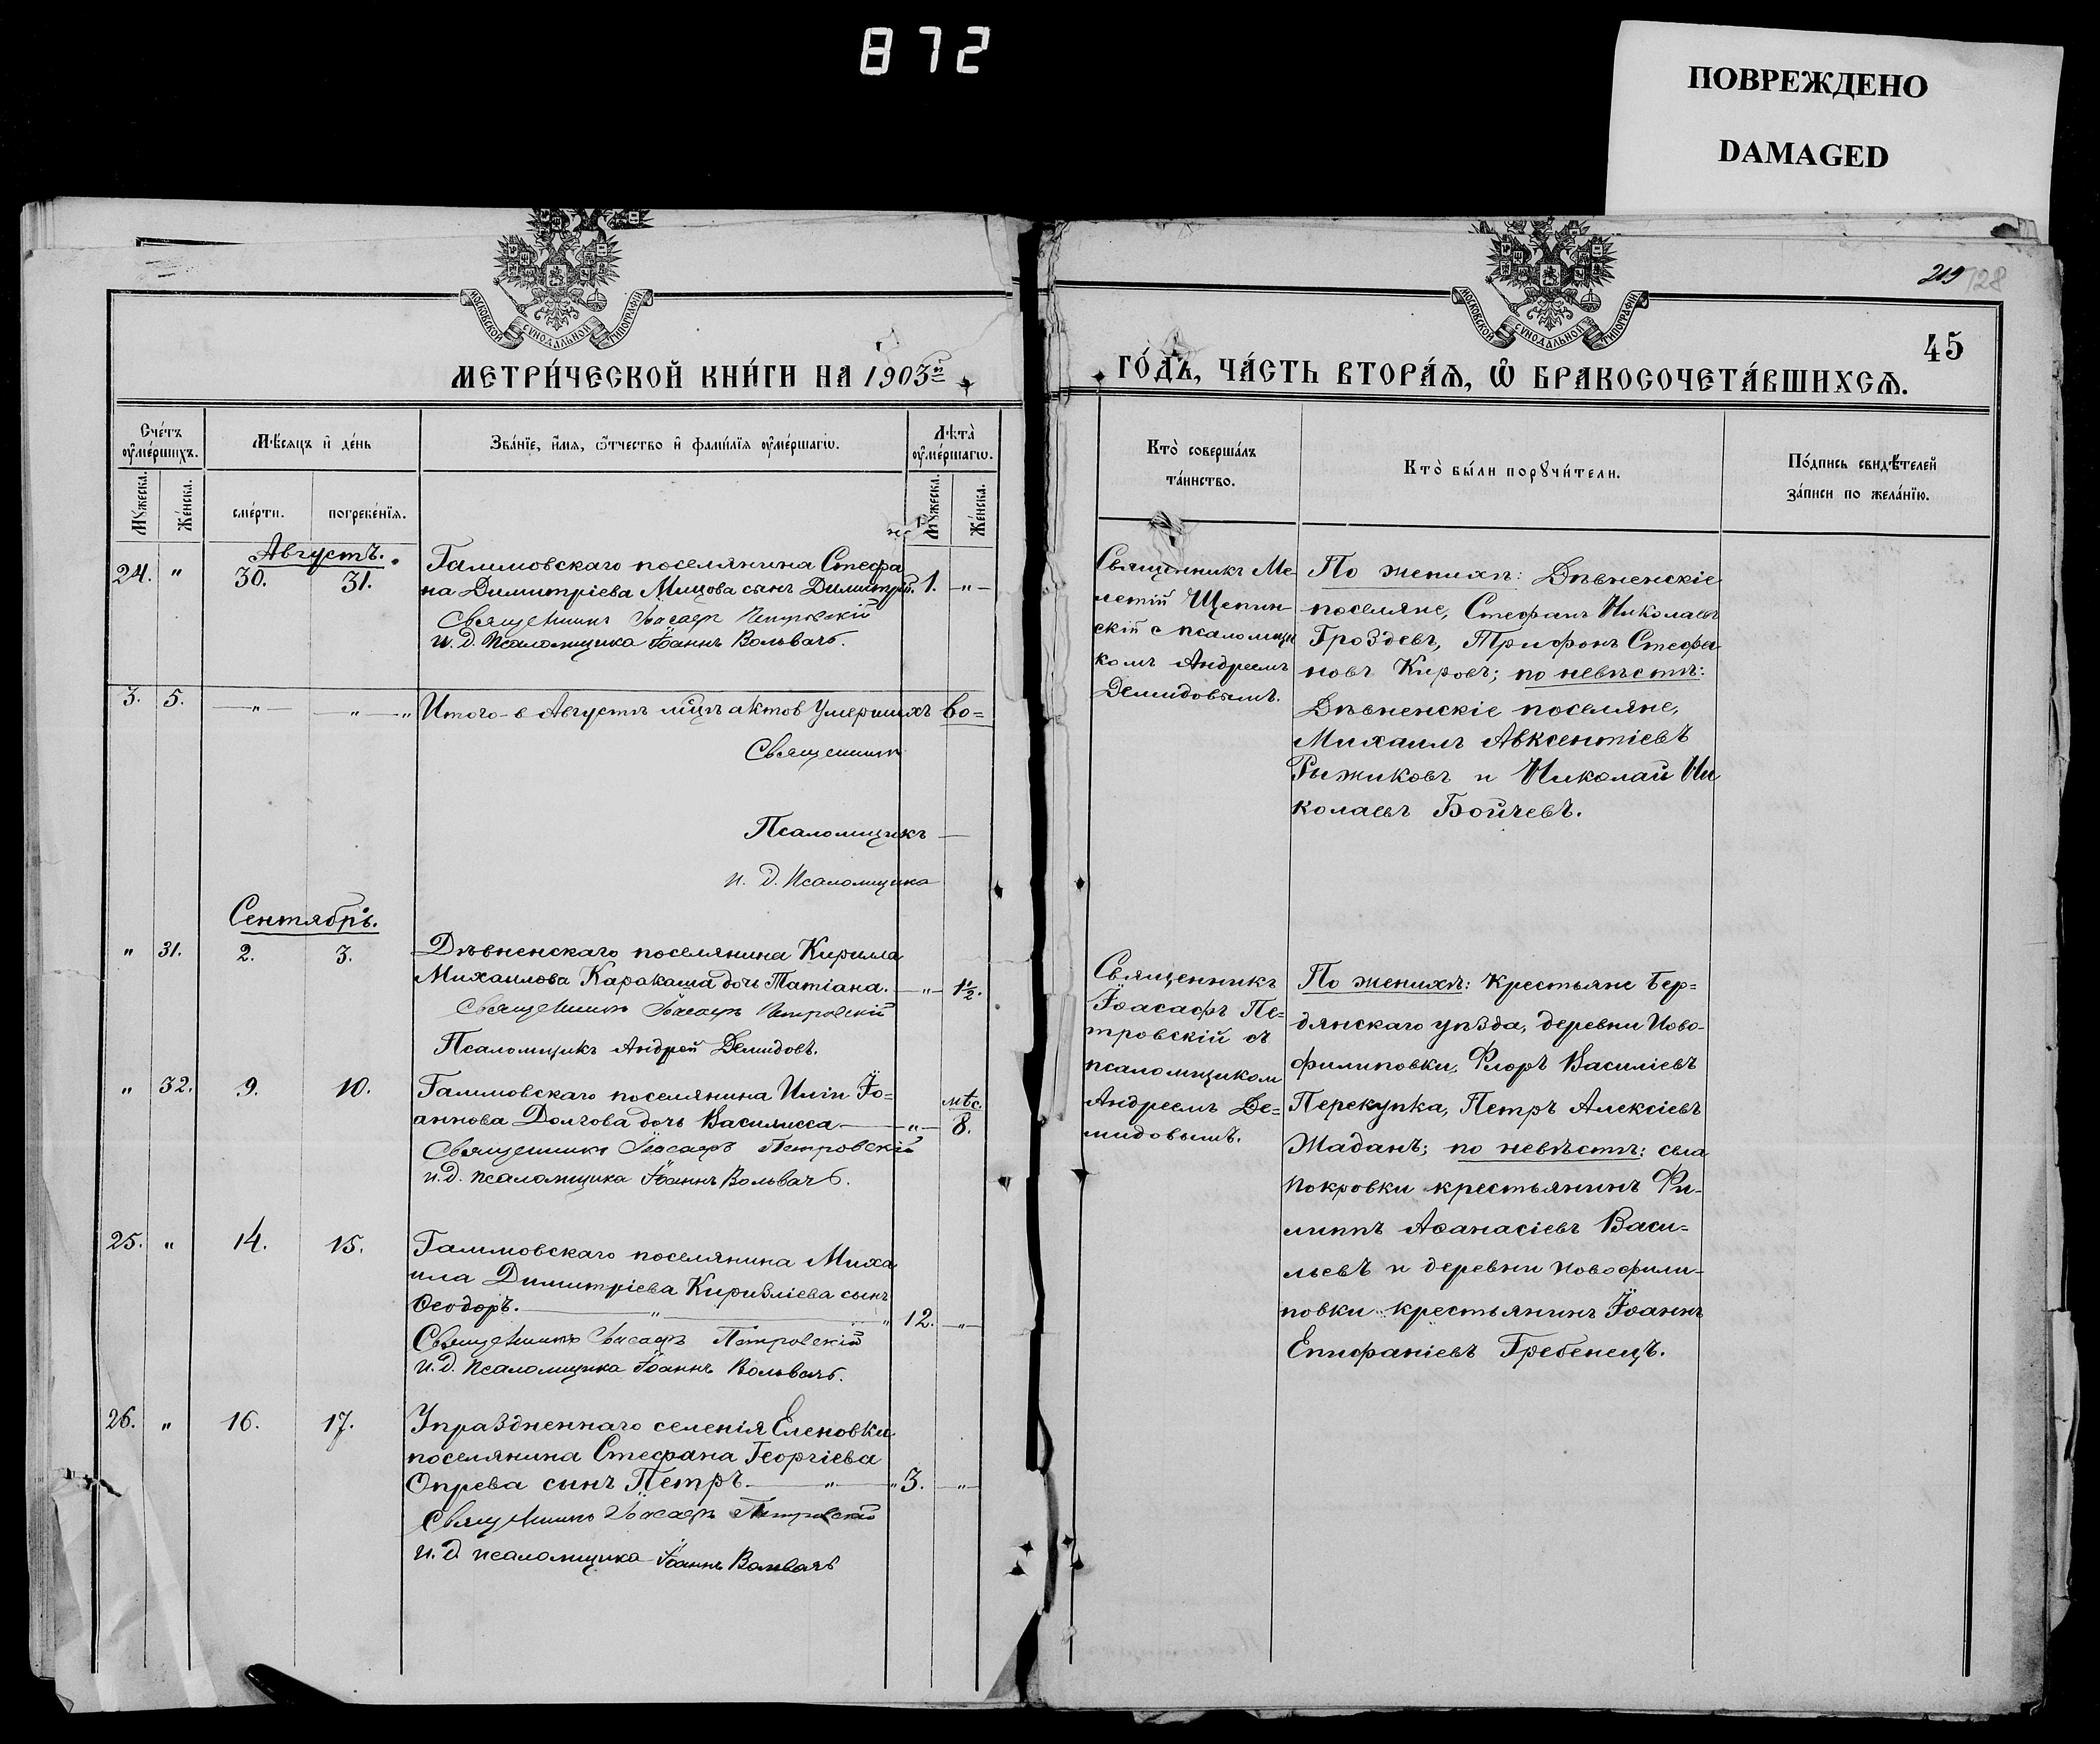 872
ПОВРЕЖДЕНО
DAMAGED
МОСКОВСКОЙ СѴНОДАЛЬНОЙ ТИПОГРАФІИ
МЕТРИ́ЧЕСКОЙ КНИ́ГИ НА 1903й
Сче́тъ ᲂу҆ме́ршихъ.
Мѣ́сяцъ и҆ де́нь
Зва́нїе, и҆́мя, ѻ҆́тчество и҆ фами́лїя ᲂу҆ме́ршагѡ.
Лѣта̀ ᲂу҆ме́ршагѡ.
Мꙋ́жеска.
Же́нска.
сме́рти.
погребе́нїя.
Мꙋ́жеска.
Же́нска.
Августъ.
24. " 30. 31. Галимовскаго поселянина Стефа
на Димитріева Мицова сынъ Димитрій. 1. "
Священникъ Іоасафъ Петровскій
и. д. псаломщика Іоаннъ Вольвачъ.
3. 5. " " " Итого в Августѣ мцѣ актов умершихъ во=
Священникъ
Псаломщикъ
и. д. псаломщика
Сентябрь.
" 31. 2. 3. Дѣвненскаго поселянина Кирилла
Михаилова Каракаша дочь Татіана. " 1½.
Священникъ Іоасафъ Петровскій
Псаломщикъ Андрей Демидовъ.
" 32. 9. 10. Галимовскаго поселянина Иліи Іо=
аннова Долгова дочь Василисса " мѣс. 8.
Священникъ Іоасафъ Петровскій
и.д. псаломщика Іоаннъ Вольвачъ.
25. " 14. 15. Галимовскаго поселянина Миха
ила Димитріева Кириліева сынъ
Ѳеодоръ. " " 12. "
Священникъ Іоасафъ Петровскій
и.д. псаломщика Іоаннъ Вольвачъ.
26. " 16. 17. Упраздненнаго селенія Еленовки
поселянина Стефана Георгіева
Опрева сынъ Петръ " " 3. "
Священникъ Іоасафъ Петровскій
и.д. псаломщика Іоаннъ Вольвачъ
МОСКОВСКОЙ СѴНОДАЛЬНОЙ ТИПОГРАФІИ
219 128
45
ГО́ДЪ, ЧА́СТЬ ВТОРА́Я, Ѽ БРАКОСОЧЕТА́ВШИХСЯ.
Кто̀ соверша́лъ
та́инство.
Кто̀ бы́ли порꙋчи́тели.
По́дпись свидѣ́телей
за́писи по жела́нїю.
Священникъ Ме
летій Щепин-
скій с псаломщи
комъ Андреемъ
Демидовымъ.
По женихѣ: Дѣвненскіе
поселяне, Стефанъ Николаевъ
Гроздевъ, Трифонъ Стефа
новъ Кировъ; по невѣстѣ:
Дѣвненскіе поселяне,
Михаилъ Авксентіевъ
Рыжиковъ и Николай Ни
колаевъ Бойчевъ.
Священникъ
Іоасафъ Пе=
тровскій съ
псаломщиком
Андреемъ Де=
мидовымъ.
По женихѣ: Крестьяне Бер=
дянскаго уѣзда, деревни Ново-
филиповки, Флоръ Василіевъ
Перекупка, Петръ Алексіевъ
Жаданъ; по невѣстѣ: села
Покровки крестьянинъ Фи-
липпъ Аѳанасіевъ Васи=
льевъ и деревни Новофили-
повки крестьянинъ Іоаннъ
Епифаніевъ Гребенецъ.